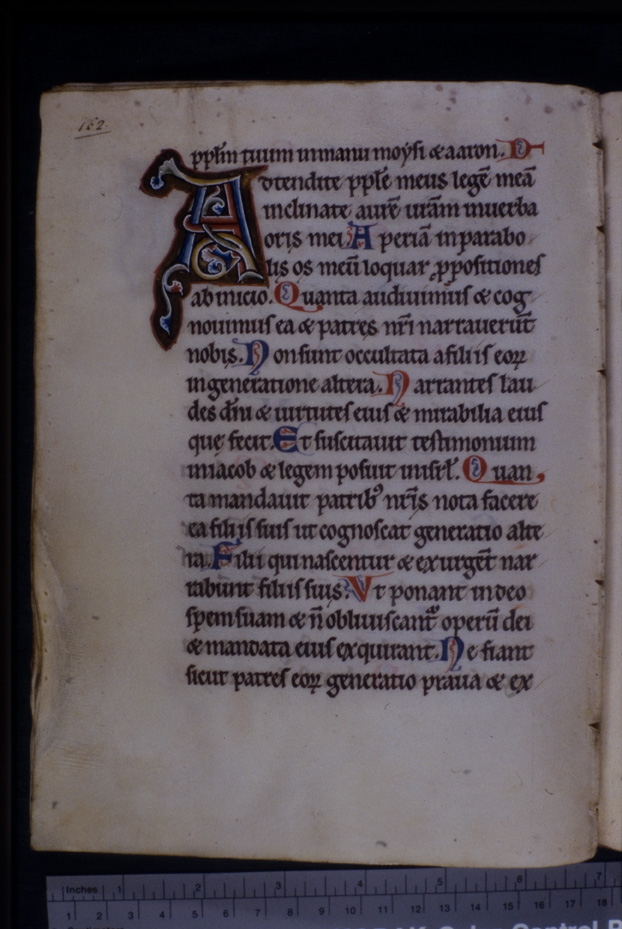 162.
pplm tuum in manu moysi & aaron.
Attendite pple meus legē meā
inclinate aurē urām in uerba
oris mei Aperiā in parabo
lis os meū loquar ppositiones
ab inicio. Quanta audiuimus & cog
nouimus ea & patres nrī narrauerūt
nobis. Non sunt occultata a filiis eoꝝ
in generatione altera. Narrantes lau
des dñi & uirtutes eius & mirabilia eius
quę fecit. Et suscitauit testimonium
in iacob & legem posuit in isrł. Quan
ta mandauit patribꝰ nrīs nota facere
ea filiis suis ut cognoscat generatio alte
ra. Filii qui nascentur & exurgēt nar
rabunt filiis suis. Vt ponant in deo
spem suam & n̄ obliuiscant᷑ operū dei
& mandata eius exquirant. Ne fiant
sicut patres eoꝝ generatio praua & ex
Inches 1 2 3 4 5 6 7
1 2 3 4 5 6 7 8 9 10 11 12 13 14 15 16 17 18